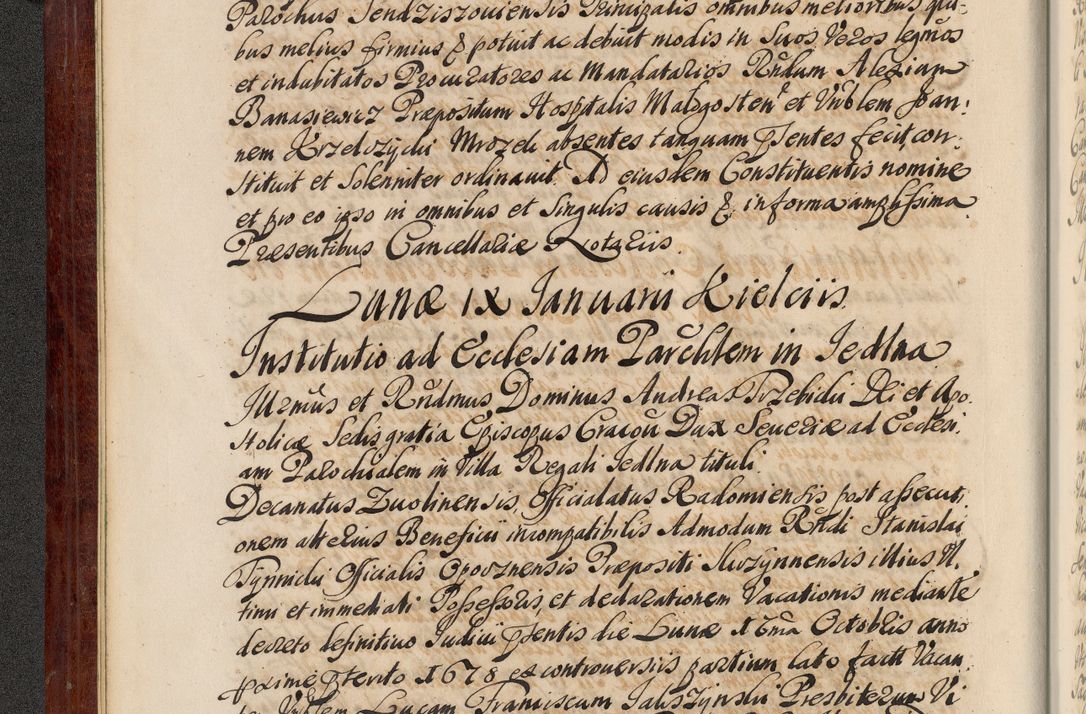 Parochus Sendziszouiensis Principalis omnibus melioribus qui-
bus melius firmius & potuit ac debuit modis in Suos Veros legmos
et indubitatos Procuratores ac Mandatarios Rndum Alexium
Banasiewicz Præpositum Hospitalis Małogosten et Vnblem Joan-
nem Krzelozycki Mrozek absentes tanquam Psentes fecit, con-
stituit et Solenniter ordinauit. Ad eiusdem Constituentis nomine
et pro eo ipso in omnibus et Singulis causis & in forma amplissima
Præsentibus Cancellariæ Notariis.
Lunæ IX Januarii Kielciis.
Institutio ad Ecclesiam Parchlem in Jedlna
Illrmus et Rndmus Dominus Andreas Trzebicki Dei et Apo-
stolicæ Sedis gratia Episcopus Cracou Dux Seueriæ ad Ecclesi-
am Parochialem in Villa Regali Jedlna tituli
Decanatus Zuolinensis, Officialatus Radomiensis post assecuti-
onem alterius Beneficii incompatibilis Admodum Rndi Stanislai
Tymicki Officialis Opocznensis Præpositi Skrzynnensis illius Vl-
timi et immediati Possessoris, et declarationem Vacationis mediante
decreto definitiuo Judicii Psentis die Lunæ 16ma Octobris anno
proxime Pterito 1678 ex controuersiis partium lato facti Vacan-
te Vnblem Lucam Franciscum Jalszynski Presbiterum Vi-